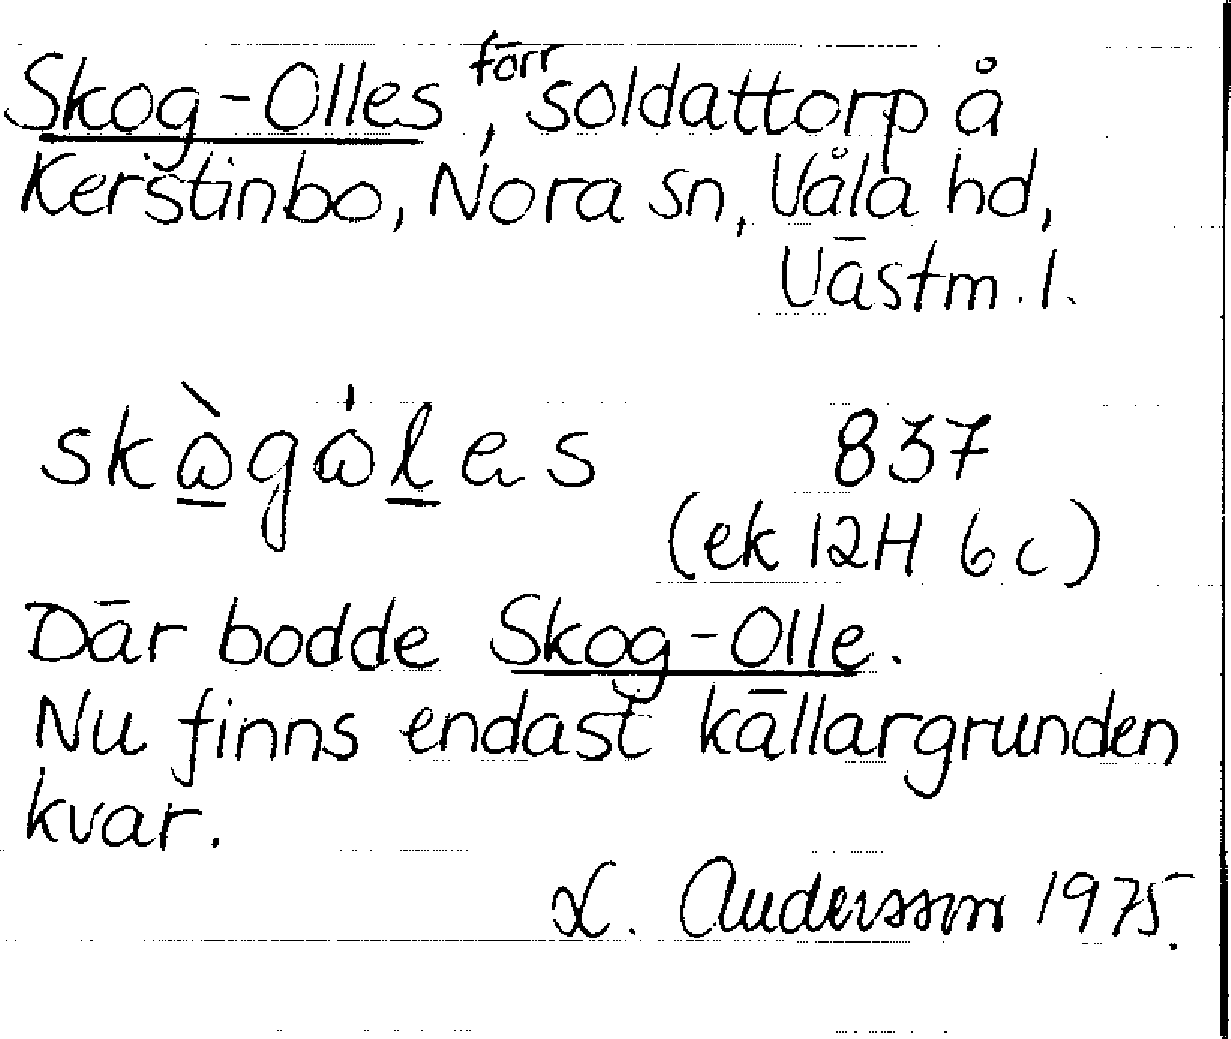 Skog-Olles, förr soldattorp å
Kerstinbo, Nora sn, Våla hd,
Västm. l.
837
(ek 12H 6c)
Där bodde Skog-Olle.
Nu finns endast källargrunden
kvar.
L. Andersson 1975.